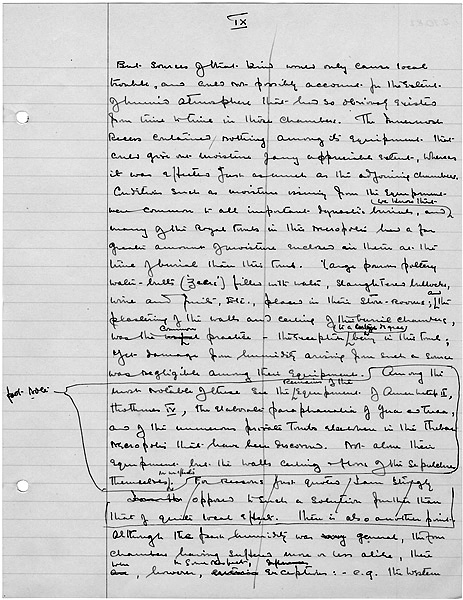 IX
But sources of that kind would only cause local
trouble, and could not possibly account for the extent
of humid atmosphere that has so obviously existed
from time to time in those chambers. The Innermost
Recess contained nothing among its equipment that
could give out moisture to any appreciable extent, whereas
it was affected just as much as the adjoining chambers.
Conditions such as moisture rising from the equipment
we know that
were common to all important dynastic burials, and
many of the Royal tombs in this Necropolis had a far
greater amount of moisture enclosed in them at the
time of burial than this tomb. Large porous pottery
water-butts filled with water, slaughtered bullocks,
wine and fruit, etc., placed in their Store-Rooms; and the
plastering of the walls and ceiling of the burial chambers,
to a large degree
was the common practice - the exception being in this tomb;
yet damage from humidity arising from such a source
was negligible among their equipment. Among the
remains of the
most notable of these are the equipment of Amenhotep II,
foot-note
Thothmes IV, the elaborate paraphernalia of Yuaa and Tuaa,
and of the numerous private tombs elsewhere in the Theban
Necropolis that have been discovered. Not alone their
equipment, but the walls ceiling & floors of the sepulchres
themselves. For reasons just quoted I am strongly
opposed to such a solution further than
that of quite local effect. There is also another point
Although the humidity was general, the four
chambers having suffered more or less alike, there
were in some respects,
however, exceptions :- e.g. the Western